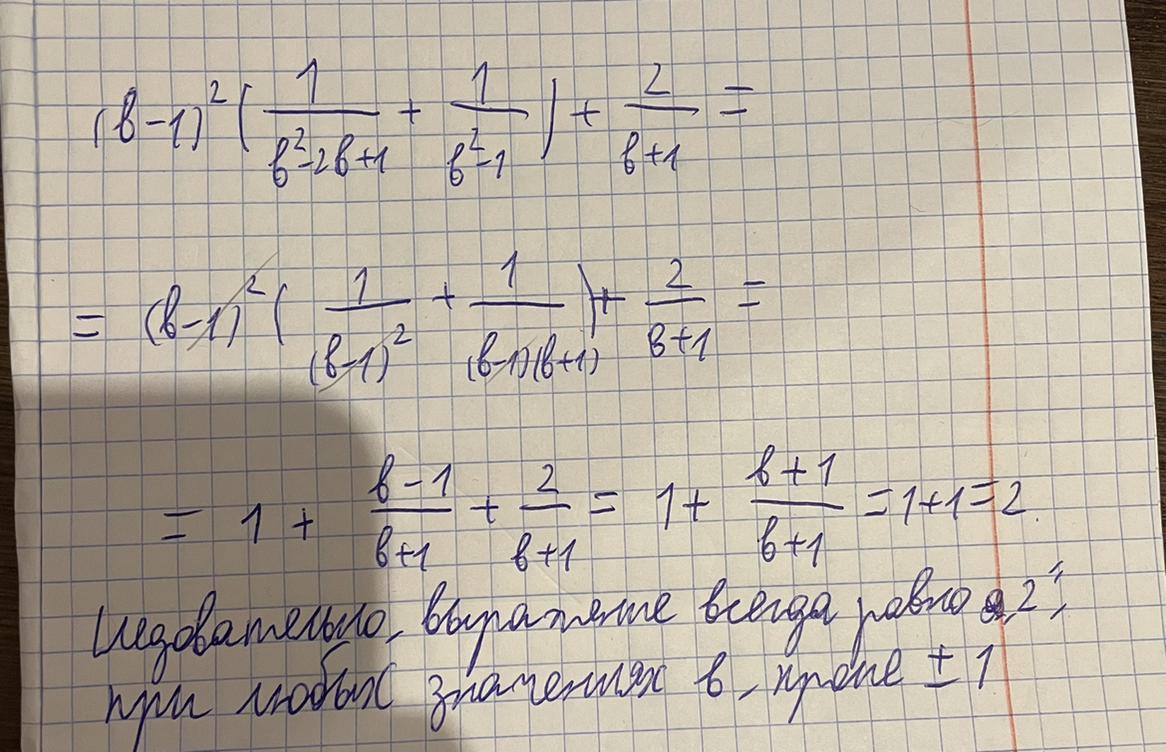 (в-1)²(1/(в²-2в+1) + 1/(в²-1)) + 2/(в+1) =
= (в-1)²(1/(в-1)² + 1/((в-1)(в+1))) + 2/(в+1) =
= 1 + (в-1)/(в+1) + 2/(в+1) = 1 + (в+1)/(в+1) = 1+1=2.
Следовательно, выражение всегда равно 2,
при любых значениях в, кроме ± 1